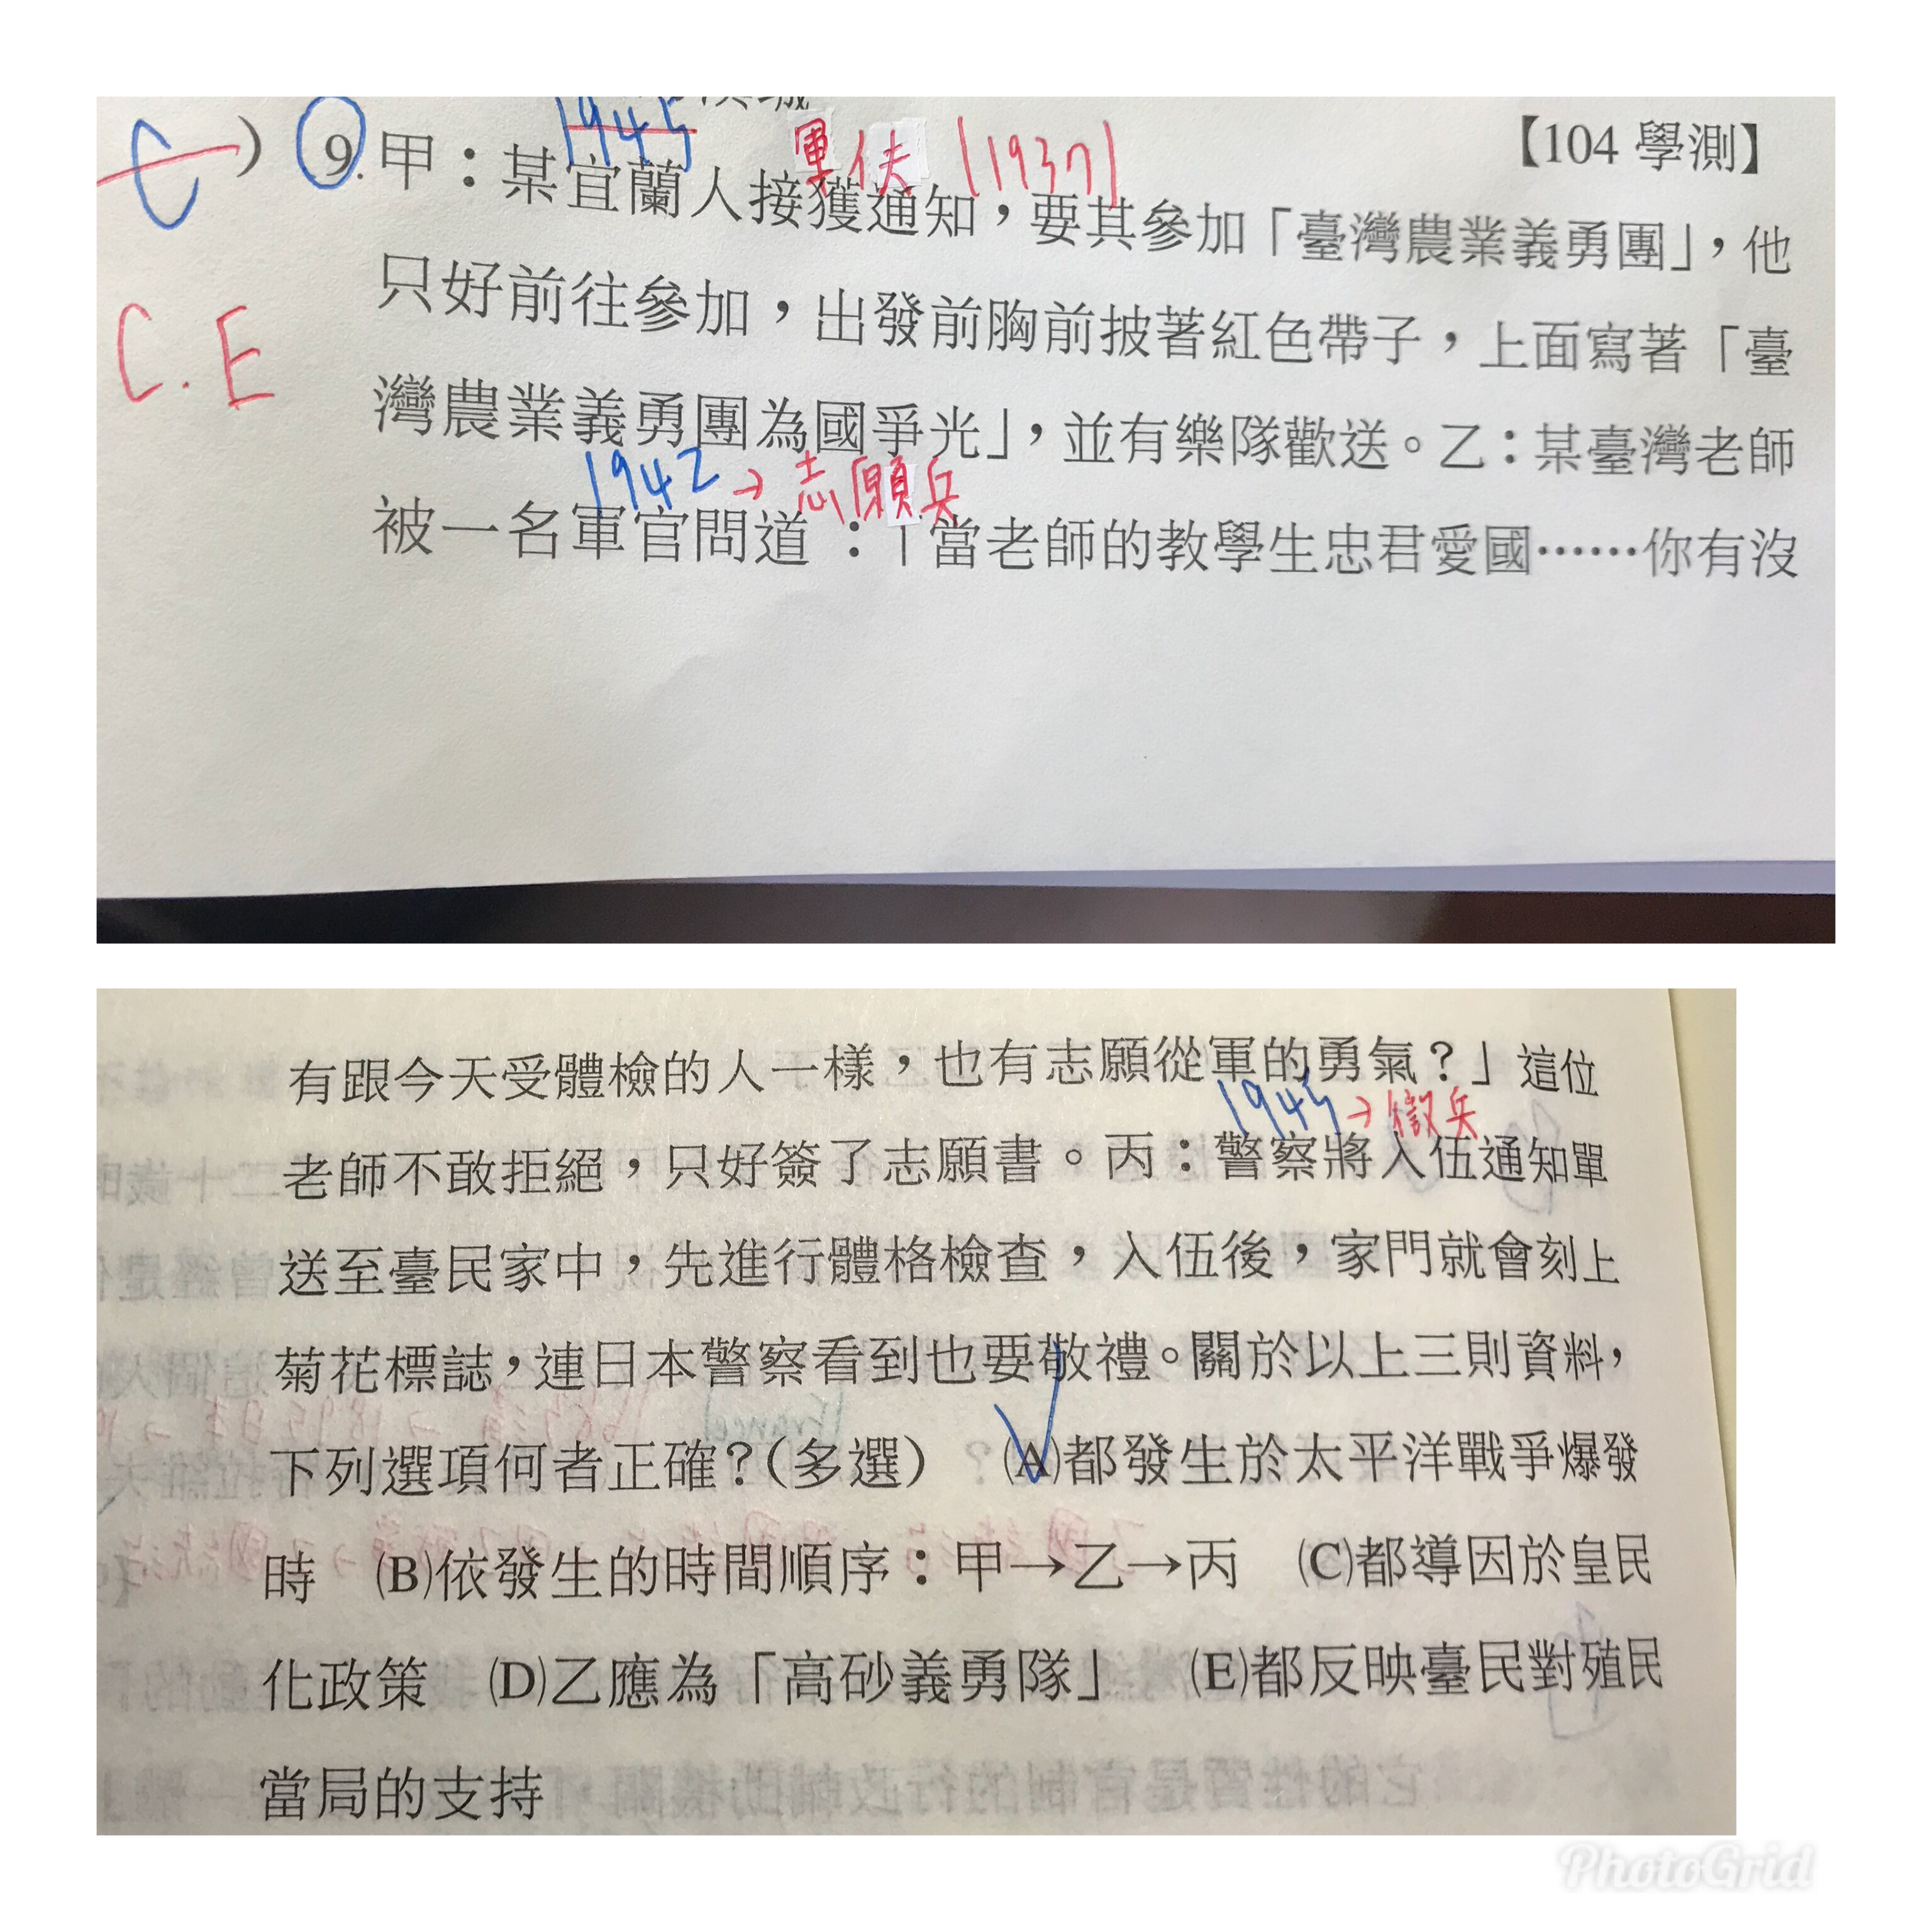 1945 軍伕 (1937) 【104 學測】
C ) 9.甲：某宜蘭人接獲通知，要其參加「臺灣農業義勇團」，他
只好前往參加，出發前胸前披著紅色帶子，上面寫著「臺
C.E
灣農業義勇團為國爭光」，並有樂隊歡送。乙：某臺灣老師
1942 → 志願兵
被一名軍官問道：「當老師的教學生忠君愛國……你有沒
有跟今天受體檢的人一樣，也有志願從軍的勇氣？」這位
1945 → 徵兵
老師不敢拒絕，只好簽了志願書。丙：警察將入伍通知單
送至臺民家中，先進行體格檢查，入伍後，家門就會刻上
菊花標誌，連日本警察看到也要敬禮。關於以上三則資料，
下列選項何者正確？（多選） (A)都發生於太平洋戰爭爆發
時 (B)依發生的時間順序：甲→乙→丙 (C)都導因於皇民
化政策 (D)乙應為「高砂義勇隊」 (E)都反映臺民對殖民
當局的支持
PhotoGrid